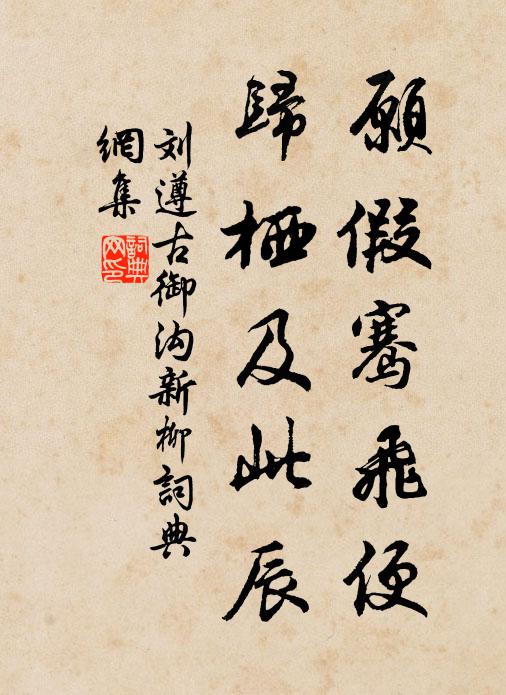 願假騫飛便
歸栖及此辰
刘遵古御沟新柳詞典
網集
詞典网印